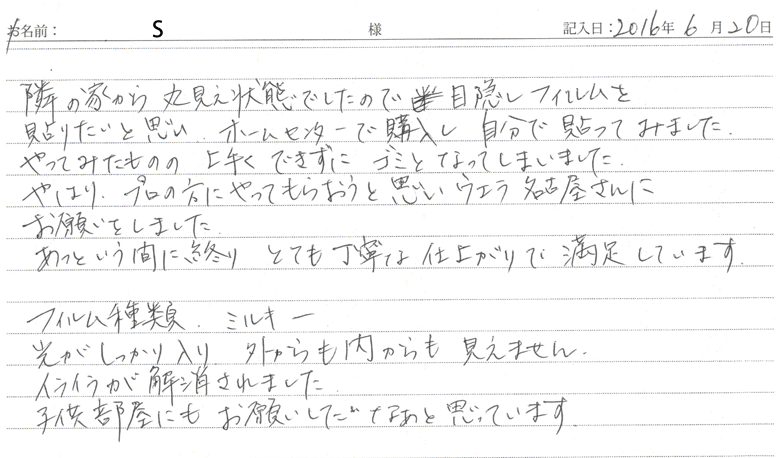 お名前： S 様 記入日：2016年 6月20日
隣の家から 丸見え状態でしたので 目隠しフィルムを
貼りたいと思い、ホームセンターで購入し 自分で貼ってみました。
やってみたものの 上手く できずに ゴミとなってしまいました。
やはり、プロの方にやってもらおうと思い ウエラ名古屋さんに
お願いをしました。
あっという間に終り とても丁寧な仕上がりで 満足しています。
フィルム種類、ミルキー
光がしっかり入り 外からも内からも 見えません。
イライラが解消されました。
子供部屋にも お願いしたいなぁと思っています。